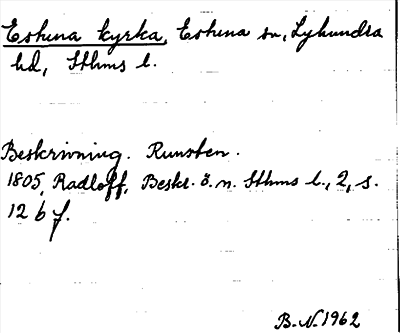 Estuna kyrka, Estuna sn, Lyhundra
hd, Sthms l.
Beskrivning. Runsten.
1805, Radloff, Beskr. ö. n. Sthms l., 2, s.
126 f.
B. N. 1962